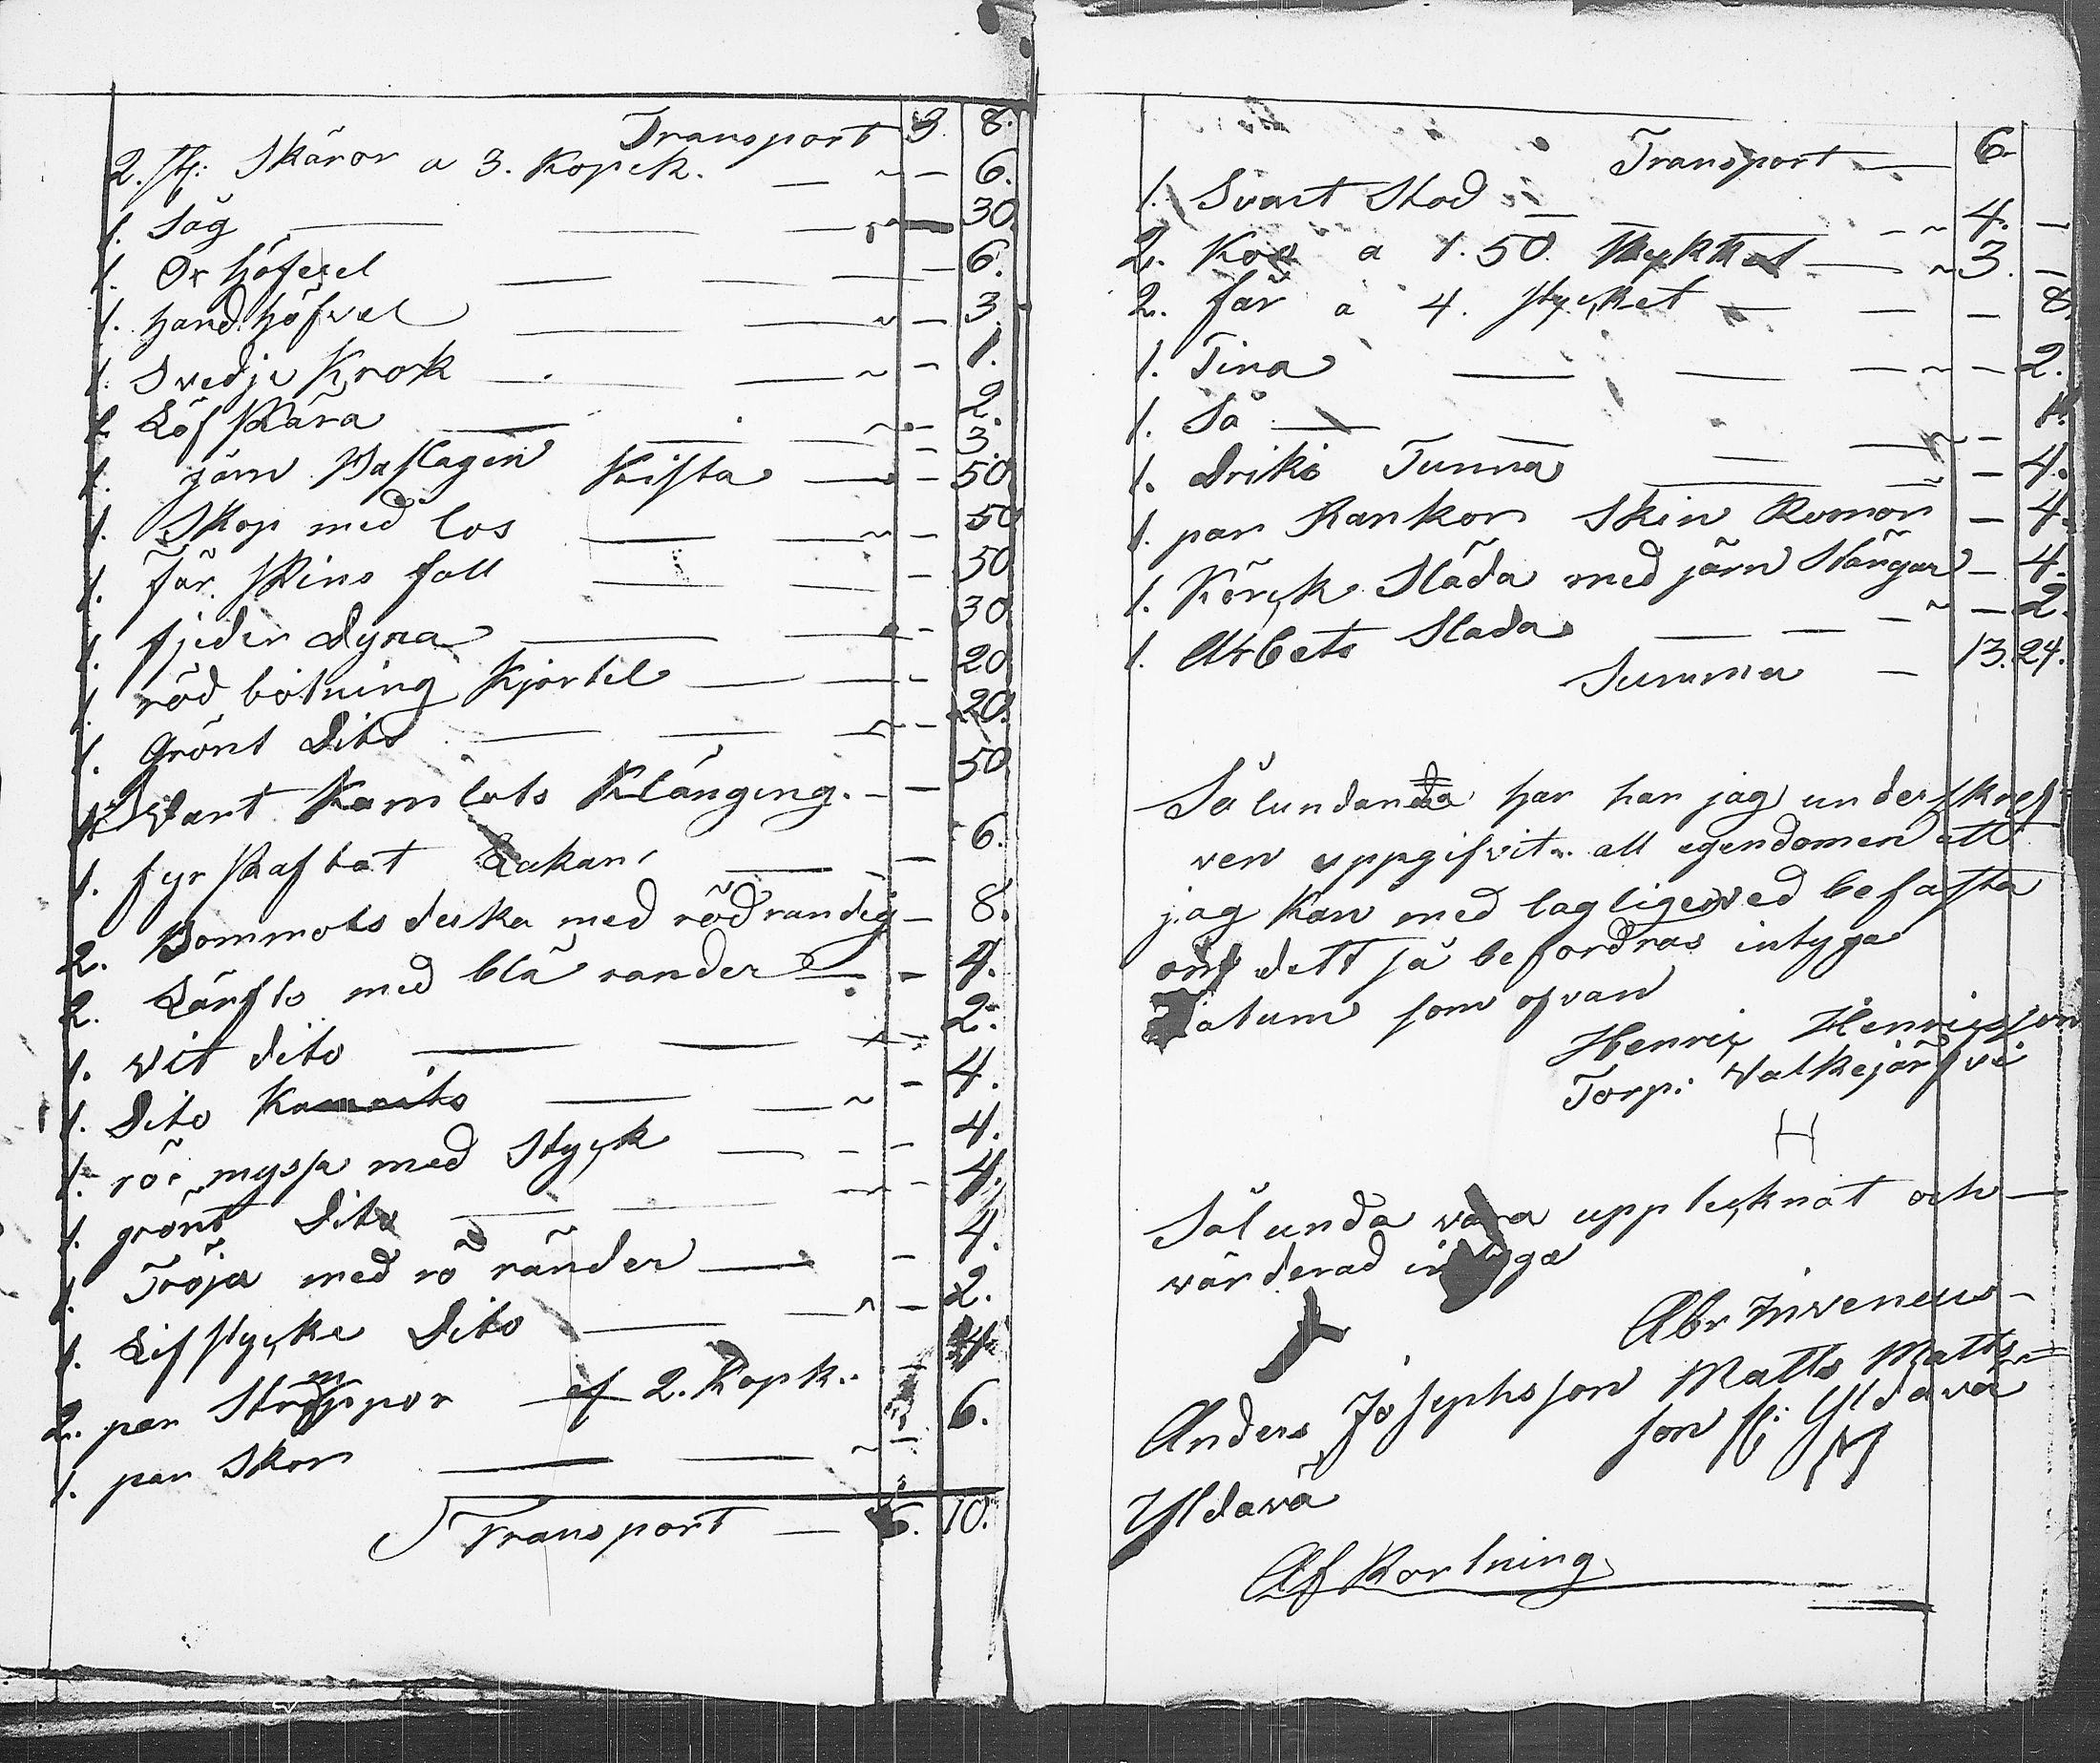 Transport 3. 8.
2. st: Skäror a 3. Kopek. 6.
1. Såg 30.
1. Ox höfvel 6.
1. hand höfvel 3.
1. Svedje Krok 1.
1. Löf skära 2.
1. järn Baslagen Kista 3.50
1. Skop med los 50
1. Får skins fall 50
1. fjeder Dyna 30
1. röd botning Kjortel 20
1. Grönt Dito 20.
1. Svart Kamlots Klänging. 50
1. fyr skaftat Lakan 6.
2. Bommols duka med rödrandig 8.
2. Lärfts med blå rander 4.
1. wit dito 2.
1. Dito 4.
1. rö myssa med Styck 4.
1. grönt Dito 4.
1. Tröja med rö ränder 4.
1. Lifstycke Dito 2.
2. par Strumppor af 2. Kopk. 4.
1. par Skor 6.
Transport 6. 10.
Transport 6.
1. Svart Stod 4. —
2. Kor a 1.50. stykket 3. —
2. får a 4. stycket — 8.
1. Tina — 2.
1. Så 1.
1. Driks Tunna 4.
1. par Rankor Skin Romor 4.
1. Körck Släda med järn Stänger 4.
1. Arbets Slada 2.
Summa 13.24.
Sålundanda har han jag underskref-
ven uppgifvit all egendomen att
jag kan med lagliged ed befasta
om dett så befordras intyga
Datum som ofvan
Henrix Henricsson
Torp: Walkejärfvi
H
Sålunda vara uppteknat och
wärderad intyga
Abr Inveneus
Anders Josephsson Matts Matts=
son fr: Yldavä
Yldavä M
Af Kortning